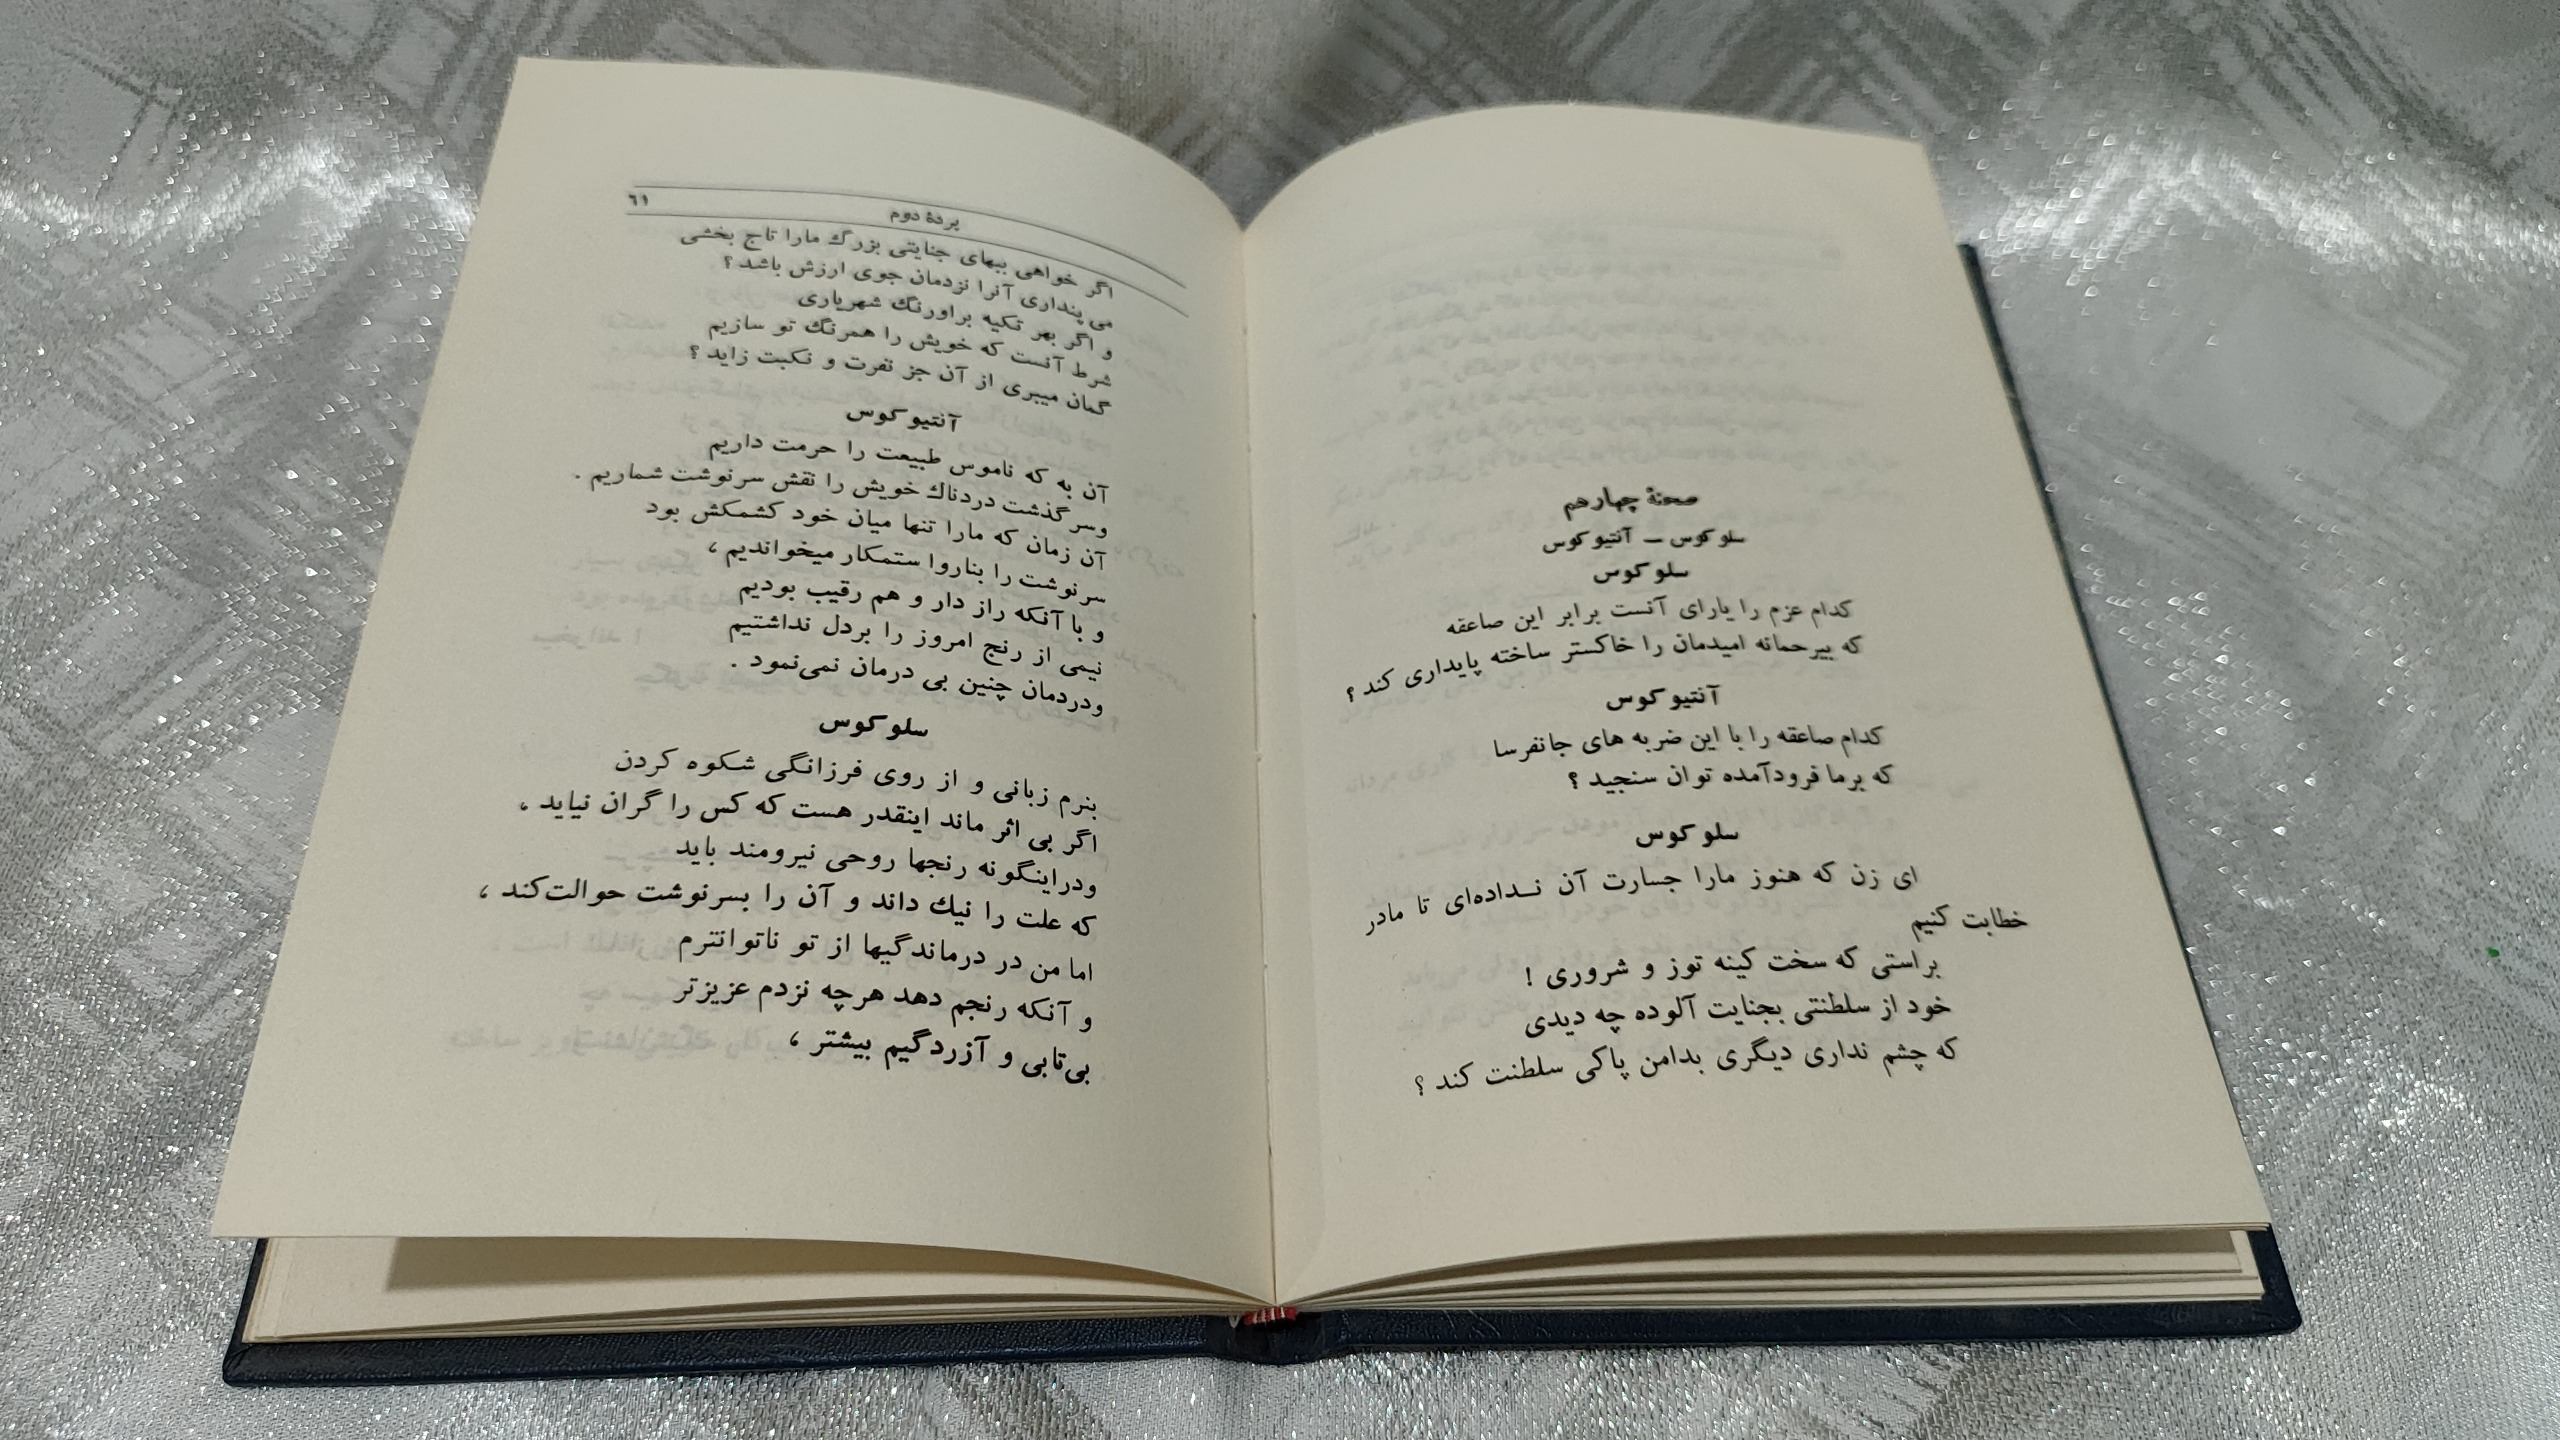 صحنهٔ چهارهم
سلوکوس – آنتیوکوس
سلوکوس
کدام عزم را یارای آنست برابر این صاعقه
که بیرحمانه امیدمان را خاکستر ساخته پایداری کند ؟
آنتیوکوس
کدام صاعقه را با این ضربه های جانفرسا
که برما فرودآمده توان سنجید ؟
سلوکوس
ای زن که هنوز مارا جسارت آن نداده‌ای تا مادر
خطابت کنیم
براستی که سخت کینه توز و شروری !
خود از سلطنتی بجنایت آلوده چه دیدی
که چشم نداری دیگری بدامن پاکی سلطنت کند ؟
پردهٔ دوم ٦١
اگر خواهی ببهای جنایتی بزرگ مارا تاج بخشی
می پنداری آنرا نزدمان جوی ارزش باشد ؟
و اگر بهر تکیه براورنگ شهریاری
شرط آنست که خویش را همرنگ تو سازیم
گمان میبری از آن جز نفرت و نکبت زاید ؟
آنتیوکوس
آن به که ناموس طبیعت را حرمت داریم
وسرگذشت دردناك خویش را نقش سرنوشت شماریم .
آن زمان که مارا تنها میان خود کشمکش بود
سرنوشت را بناروا ستمکار میخواندیم ،
و با آنکه راز دار و هم رقیب بودیم
نیمی از رنج امروز را بردل نداشتیم
ودردمان چنین بی درمان نمی‌نمود .
سلوکوس
بنرم زبانی و از روی فرزانگی شکوه کردن
اگر بی اثر ماند اینقدر هست که کس را گران نیاید ،
ودراینگونه رنجها روحی نیرومند باید
که علت را نیك داند و آن را بسرنوشت حوالت‌کند ،
اما من در درماندگیها از تو ناتوانترم
و آنکه رنجم دهد هرچه نزدم عزیزتر
بی‌تابی و آزردگیم بیشتر ،